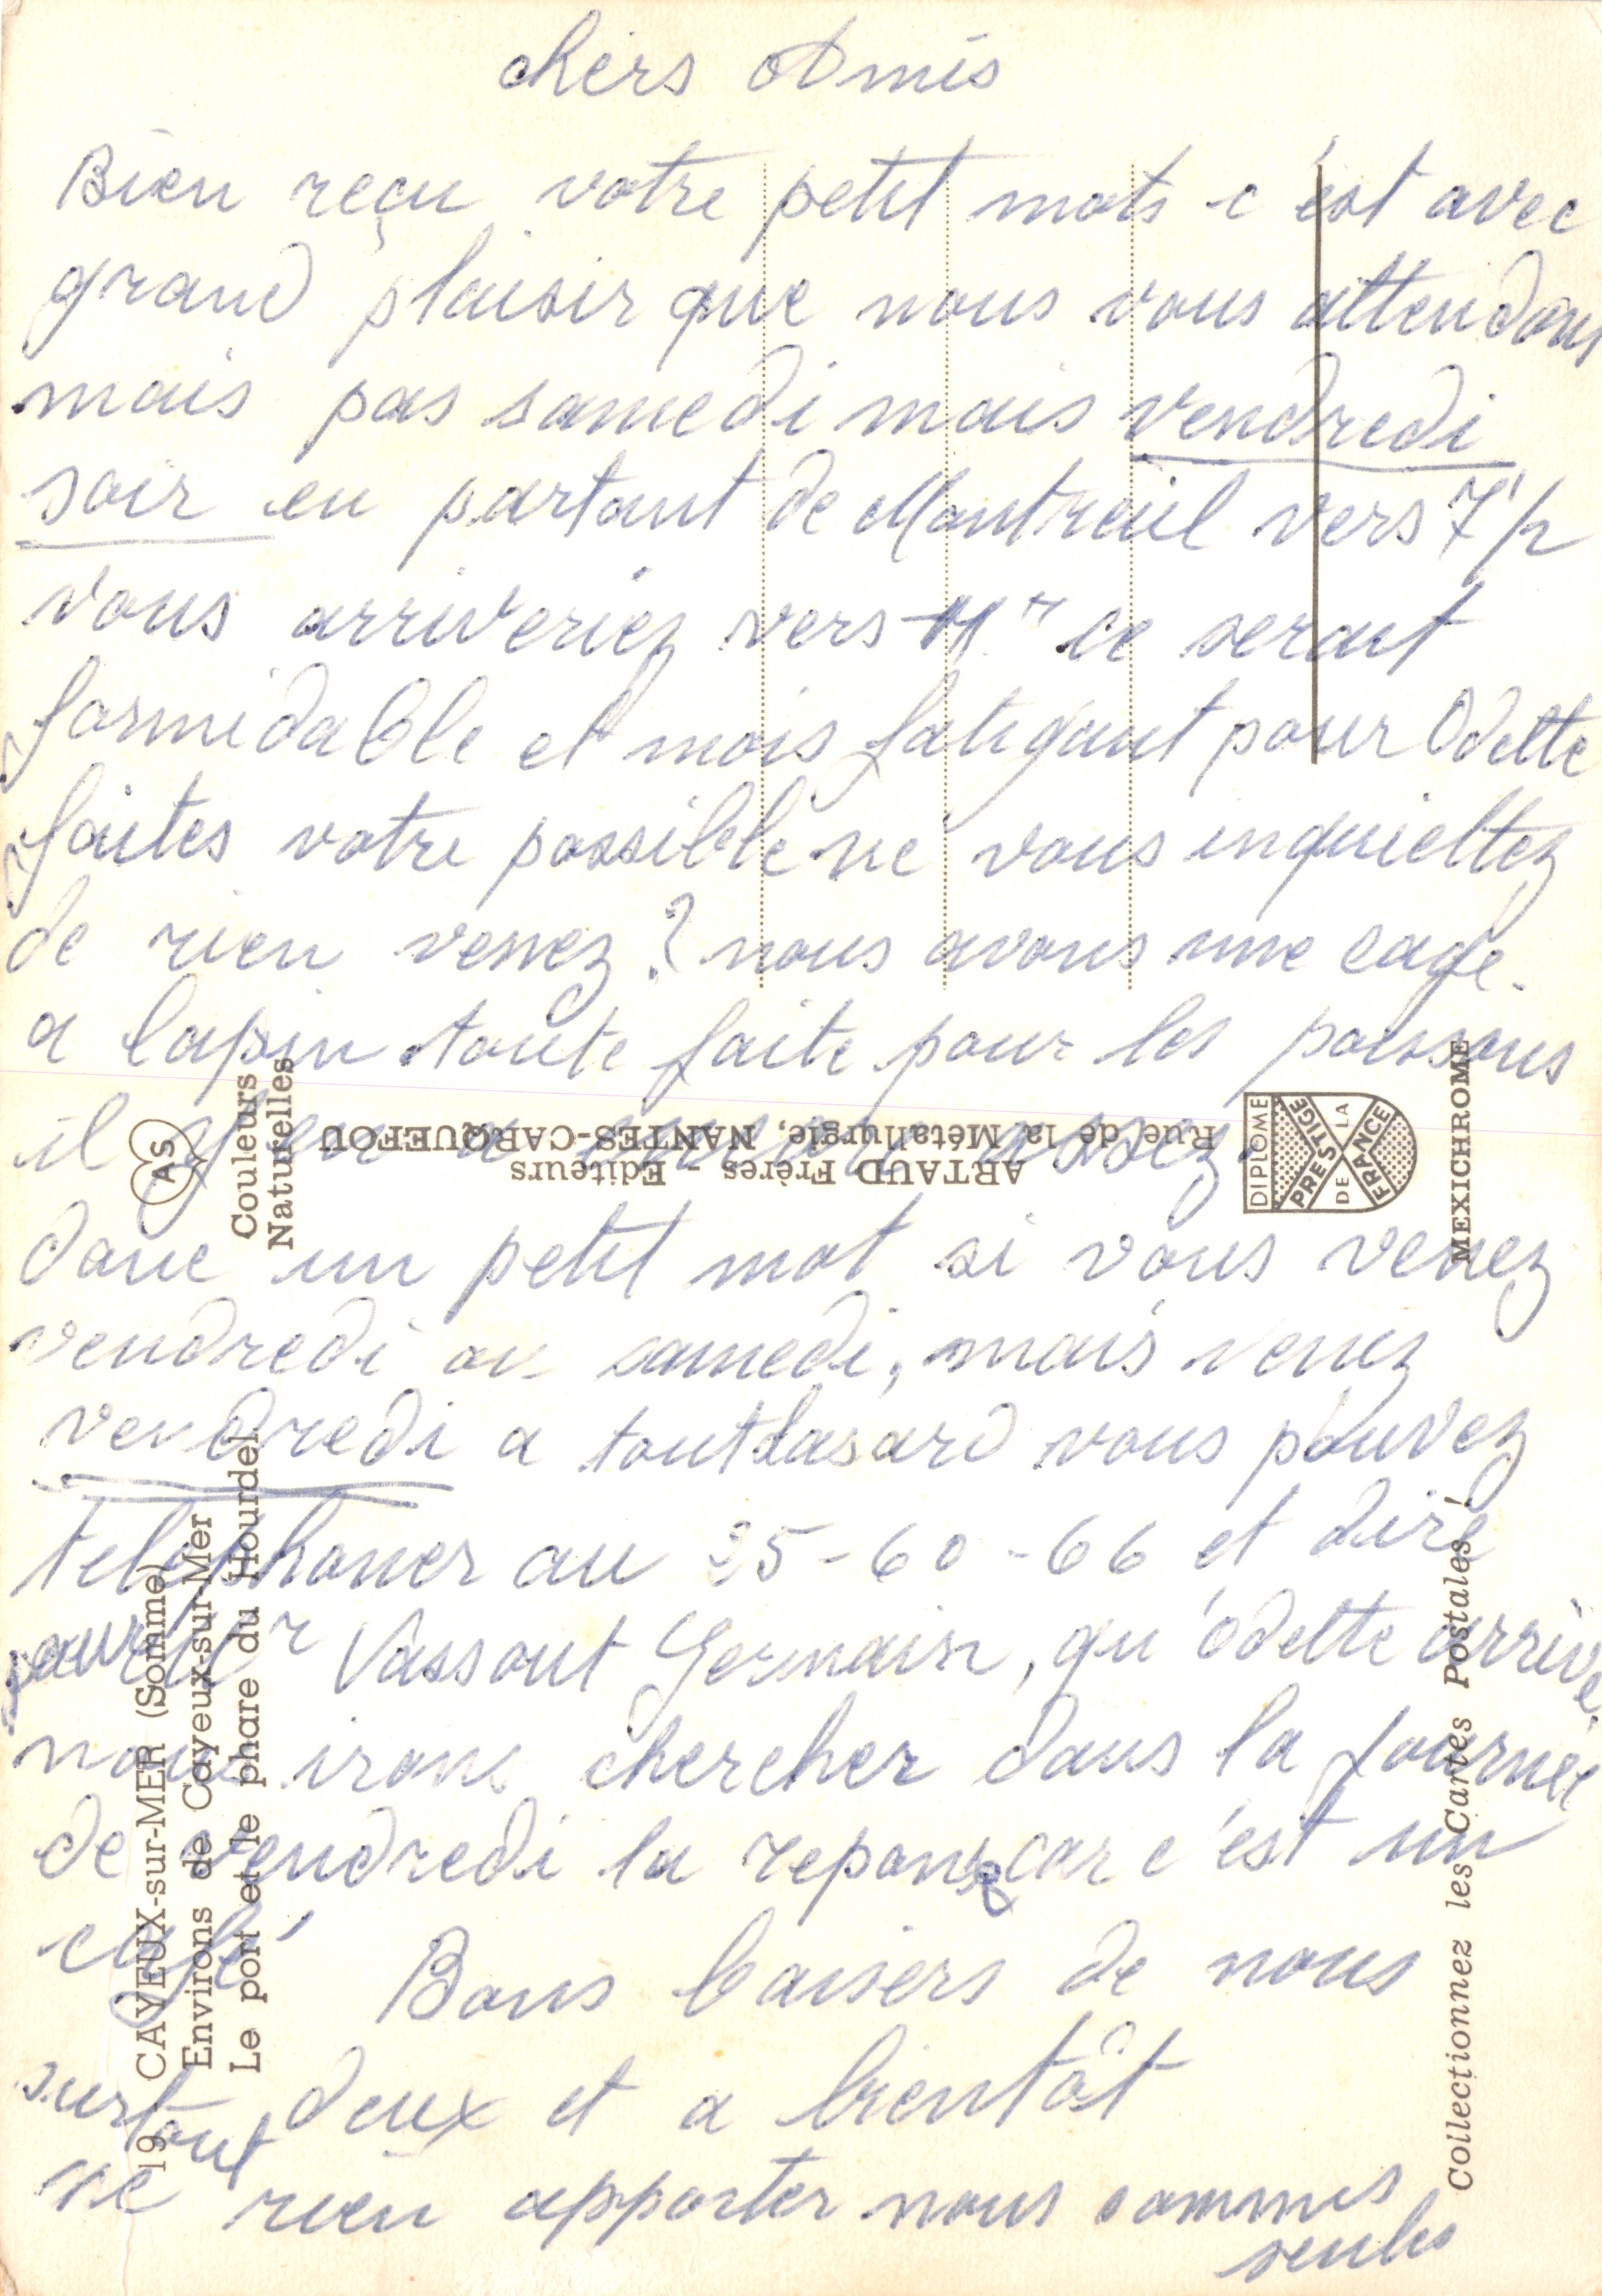 chers Amis
Bien reçu votre petit mots c'est avec
grand plaisir que nous vous attendons
mais pas samedi mais vendredi
soir en partant de Montreuil vers 7 1/2
vous arriveriez vers ce serait
formidable et mois fatigant pour Odette
faites votre possible ne vous inquiettez
de rien venez ? nous avons une cage
a lapin toute faite pour les poissons
il y en a assez
donc un petit mot si vous venez
vendredi ou samedi, mais venez
vendredi a tout hasard vous pouvez
telephoner au 25-60-66 et dire
pour Mr Vassout Germain, qu'odette arrive
nous irons chercher dans la journée
de vendredi la reponse car c'est un
café
Bons baisers de nous
deux et a bientôt
surtout
ne rien apporter nous sommes
seuls
AS
Couleurs
Naturelles
ARTAUD Frères - Editeurs
Rue de la Métallurgie, NANTES-CARQUEFOU
DIPLOME
PRESTIGE
DE LA
FRANCE
MEXICHROME
19 CAYEUX-sur-MER (Somme)
Environs de Cayeux-sur-Mer
Le port et le phare du Hourdel
Collectionnez les Cartes Postales !